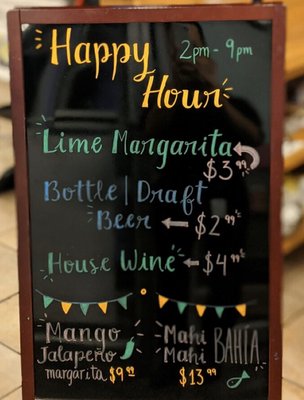 Happy
2pm - 9pm
Hour
Lime Margarita
$3.99
Bottle | Draft
Beer ← $2.99
House Wine ← $4.99
Mango
Jalapeño
margarita $9.99
Mahi
Mahi
BAHÍA
$13.99